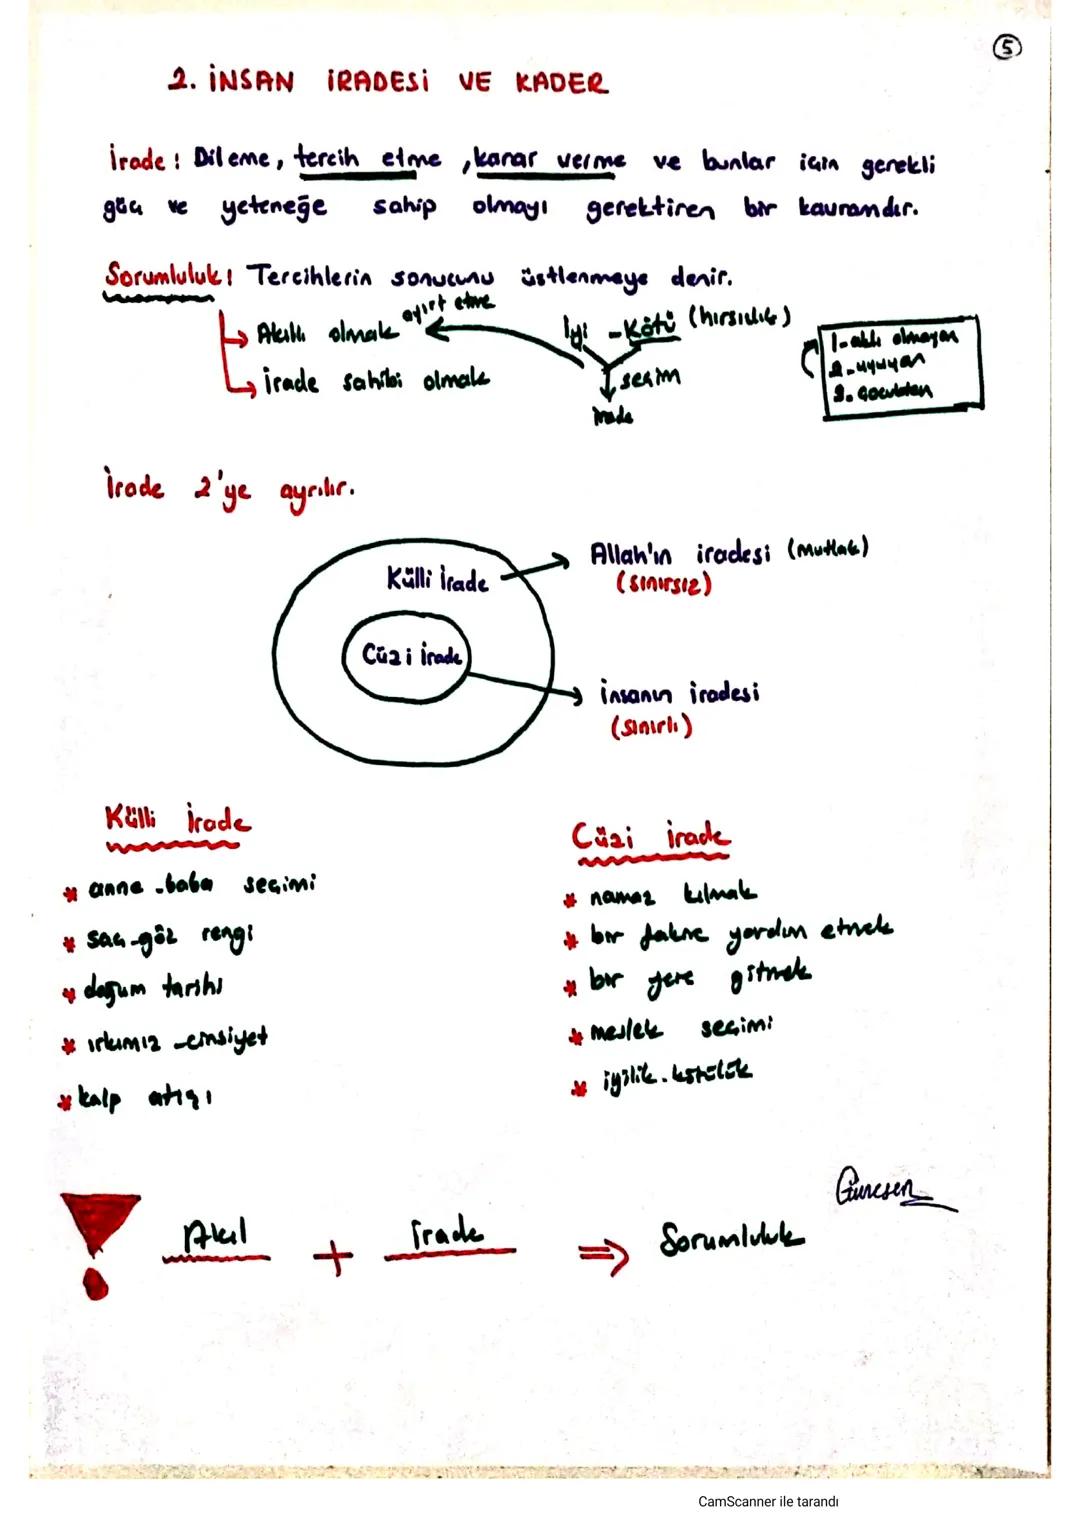 5
2. İNSAN İRADESİ VE KADER
İrade: Dileme, tercih etme, karar verme ve bunlar için gerekli
güç ve yeteneğe sahip olmayı gerektiren bir kavramdır.
Sorumluluk: Tercihlerin sonucunu üstlenmeye denir.
Akıllı olmak
ayırt etme
İyi - Kötü (hırsızlık)
İrade sahibi olmak
seçim
irade
1- aklı olmayan
2- uyuyan
3. çocuktan
İrade 2'ye ayrılır.
Külli İrade
Allah'ın iradesi (mutlak)
(sınırsız)
Cüzi İrade
insanın iradesi
(sınırlı)
Külli İrade
* anne - baba seçimi
* saç - göz rengi
* doğum tarihi
* ırkımız - cinsiyet
* kalp atışı
Cüzi İrade
* namaz kılmak
* bir fakire yardım etmek
* bir yere gitmek
* meslek seçimi
* iyilik - kötülük
! Akıl + İrade ⇒ Sorumluluk
CamScanner ile tarandı